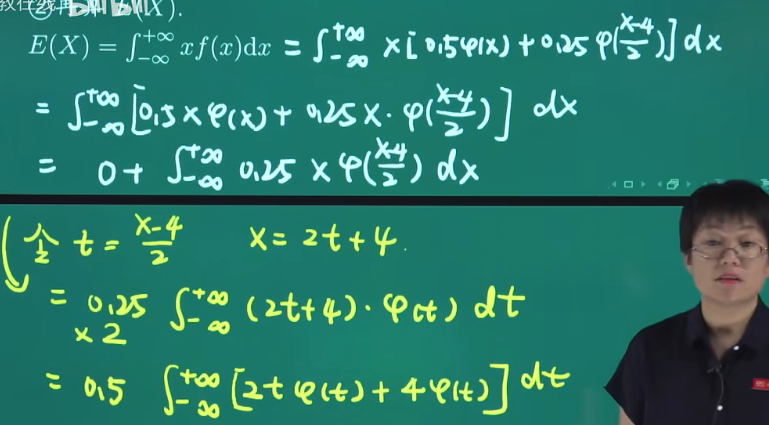 ②再
(X).
E(X) = ∫_{-∞}^{+∞} xf(x)dx = ∫_{-∞}^{+∞} x[0.5φ(x) + 0.25φ(\frac{x-4}{2})] dx
= ∫_{-∞}^{+∞} [0.5xφ(x) + 0.25x·φ(\frac{x-4}{2})] dx
= 0 + ∫_{-∞}^{+∞} 0.25xφ(\frac{x-4}{2}) dx
令 t = \frac{x-4}{2} x = 2t+4.
= 0.25 ∫_{-∞}^{+∞} (2t+4)·φ(t) dt
×2
= 0.5 ∫_{-∞}^{+∞} [2tφ(t) + 4φ(t)] dt